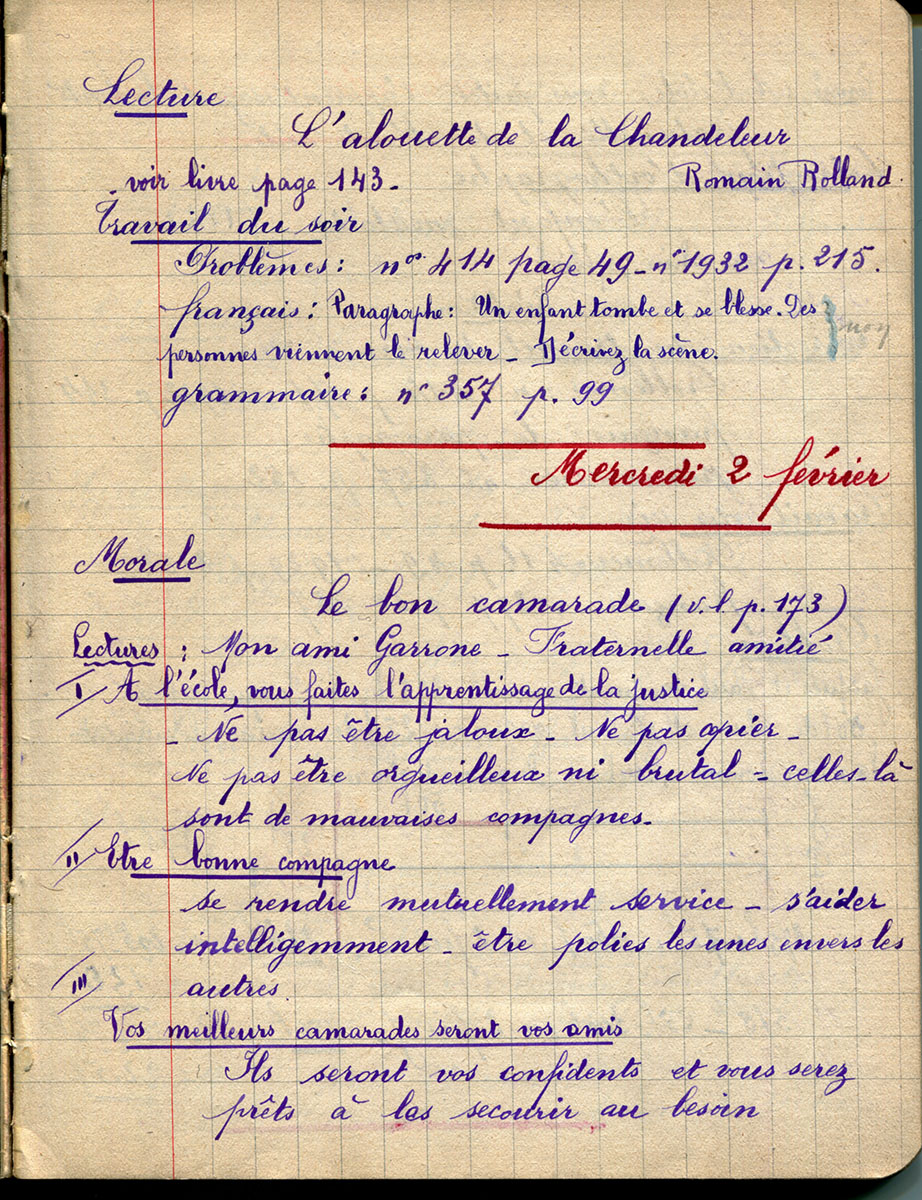 Lecture
L'alouette de la Chandeleur
- voir livre page 143 - Romain Rolland.
Travail du soir
Problèmes : nos 414 page 49 - n° 1932 p. 215.
français : Paragraphe : Un enfant tombe et se blesse. Des
personnes viennent le relever - Décrivez la scène.
grammaire : n° 357 p. 99
Mercredi 2 février
Morale
Le bon camarade (v. l p. 173)
Lectures : Mon ami Garrone - Fraternelle amitié
I/ A l'école, vous faites l'apprentissage de la justice
- Ne pas être jaloux - Ne pas copier -
Ne pas être orgueilleux ni brutal = celles-là
sont de mauvaises compagnes -
II/ Etre bonne compagne
se rendre mutuellement service - s'aider
intelligemment - être polies les unes envers les
III/ autres.
Vos meilleurs camarades seront vos amis
Ils seront vos confidents et vous serez
prêts à les secourir au besoin